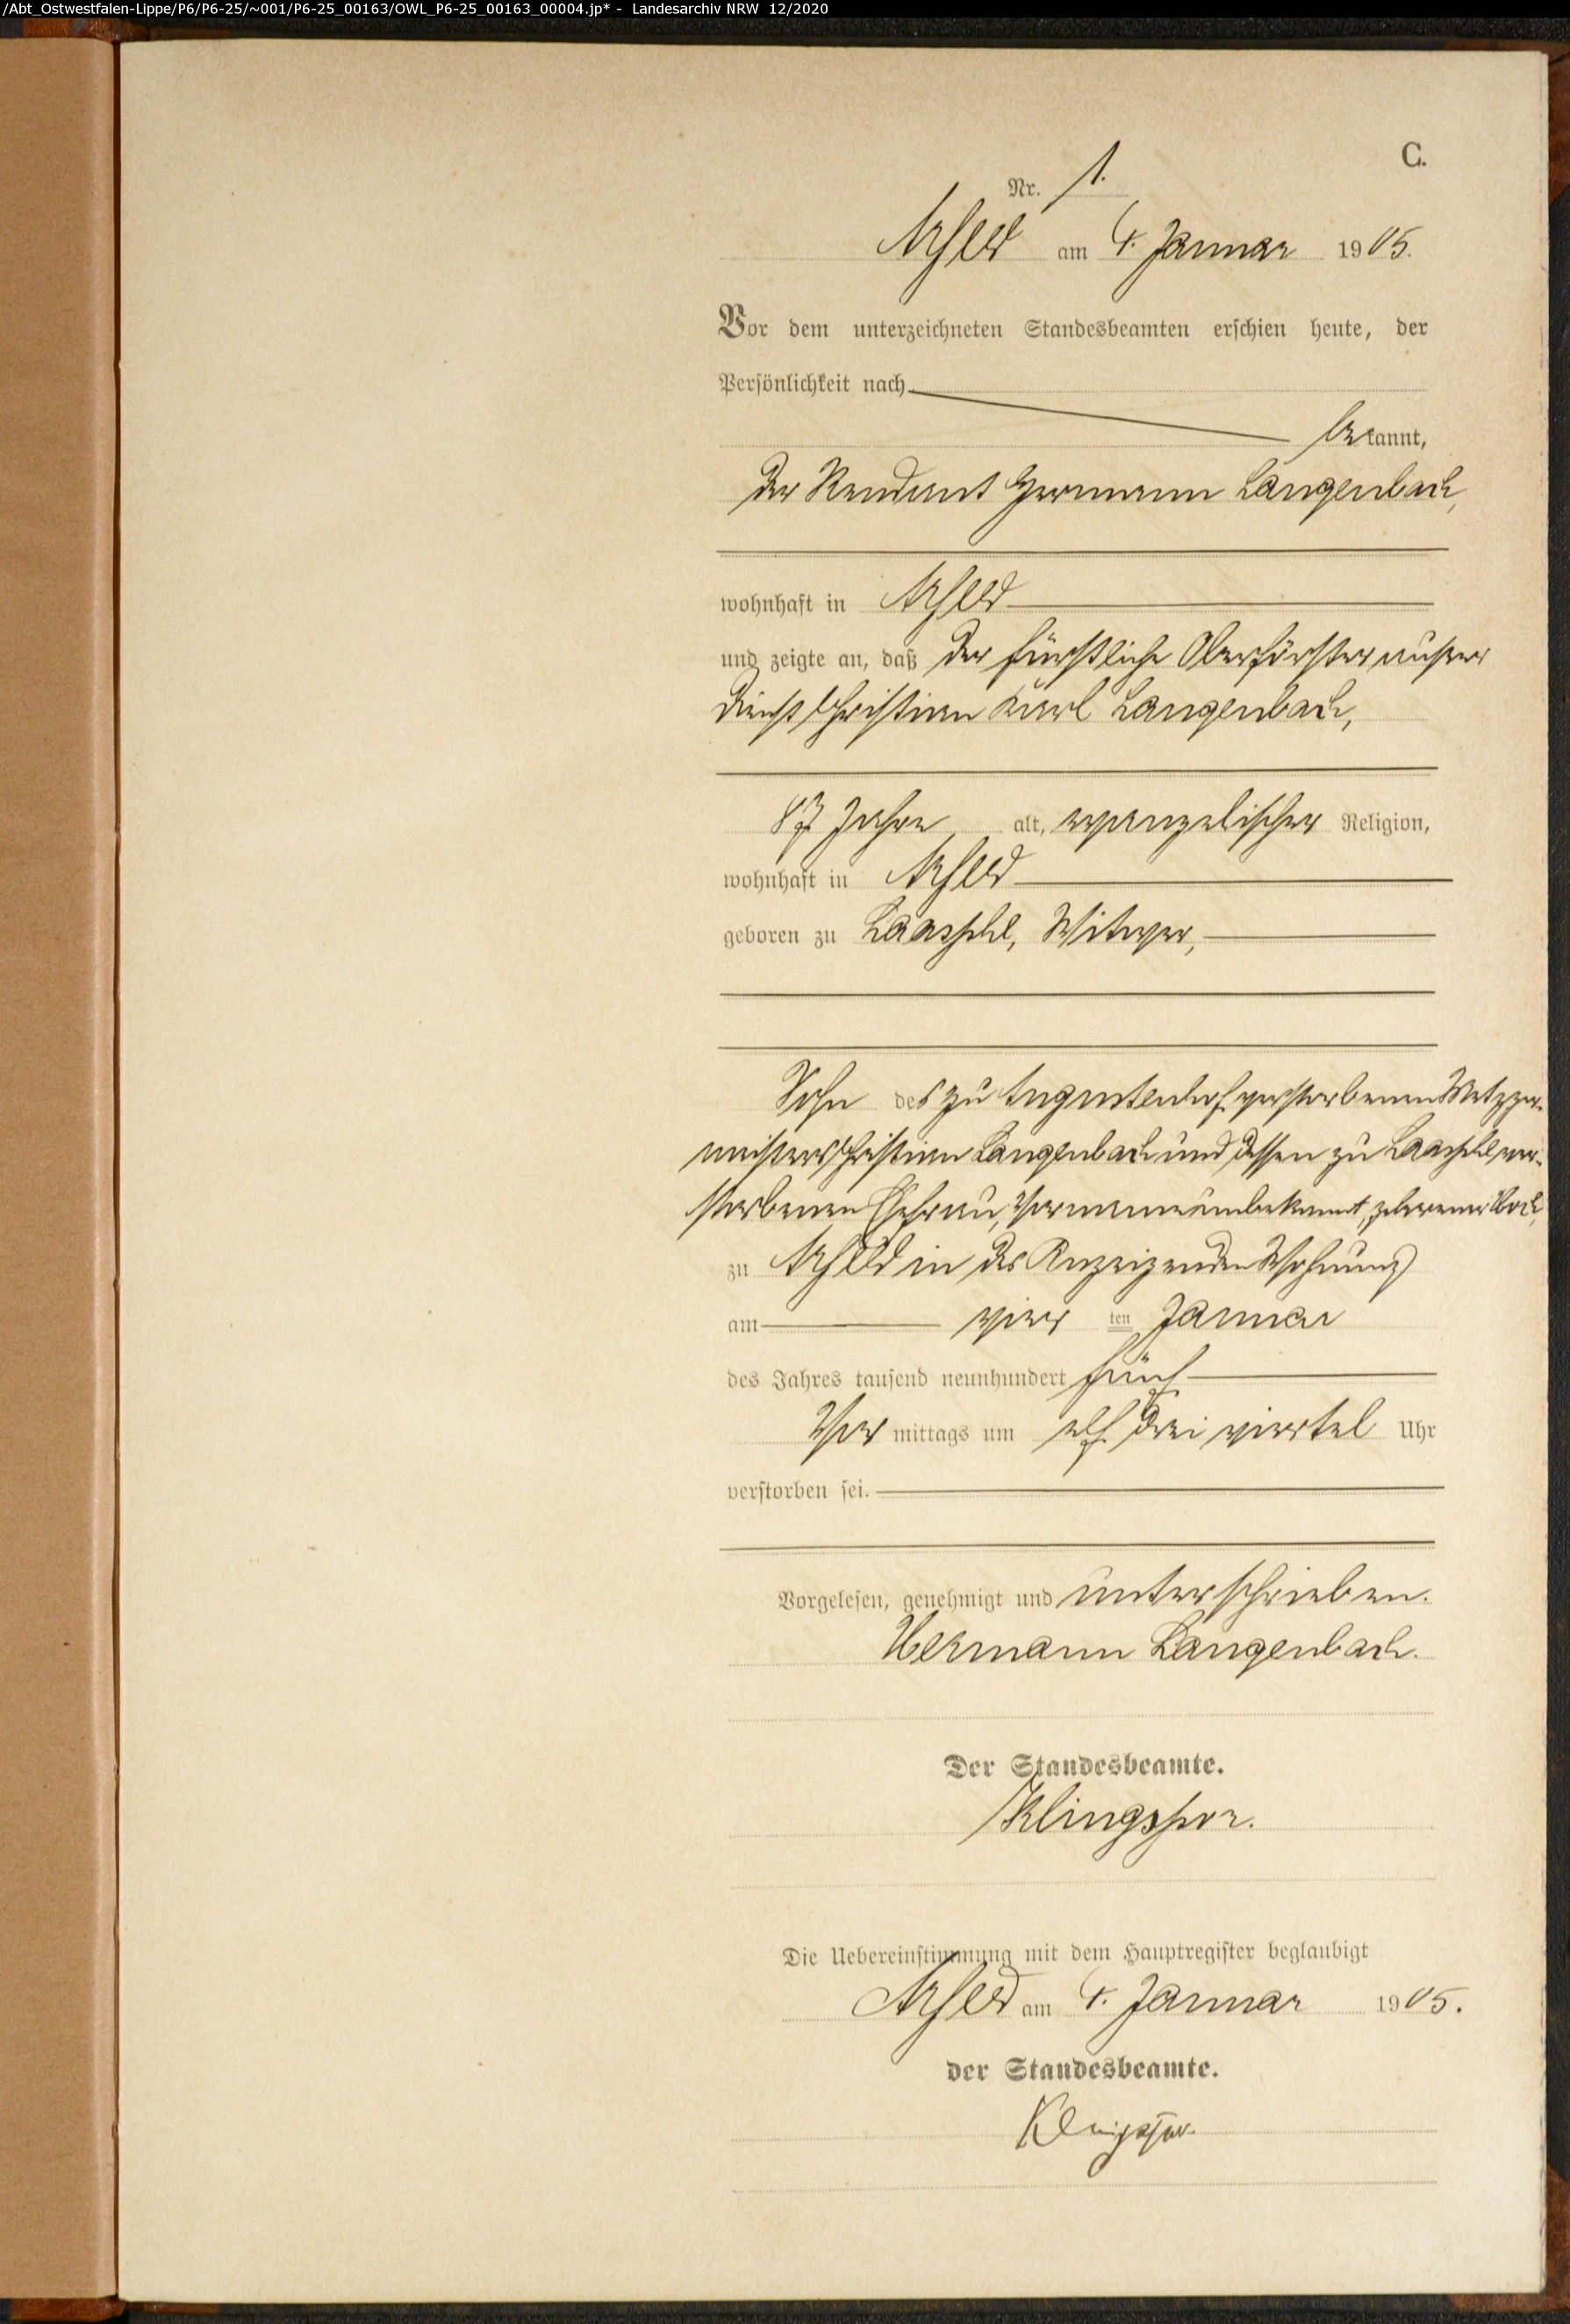 /Abt_Ostwestfalen-Lippe/P6/P6-25/~001/P6-25_00163/OWL_P6-25_00163_00004.jp* - Landesarchiv NRW 12/2020
C.
Nr. 1.
Arfeld am 4. Januar 1905.
Vor dem unterzeichneten Standesbeamten erschien heute, der
Persönlichkeit nach
bekannt,
der Rendant Hermann Langenbach,
wohnhaft in Arfeld
und zeigte an, daß der fürstliche Oberförster außer
Dienst Christian Karl Langenbach,
87 Jahre alt, evangelischer Religion,
wohnhaft in Arfeld
geboren zu Laasphe, Witwer,
Sohn des zu verstorbenen Metzger-
meisters Christian Langenbach und dessen zu Laasphe ver-
storbenen Ehefrau, Vorname unbekannt, geborener
zu Arfeld in des Anzeigenden Wohnung
am vier ten Januar
des Jahres tausend neunhundert fünf
Vor mittags um elf drei viertel Uhr
verstorben sei.
Vorgelesen, genehmigt und unterschrieben.
Hermann Langenbach.
Der Standesbeamte.
Klingspor.
Die Uebereinstimmung mit dem Hauptregister beglaubigt
Arfeld am 4. Januar 1905.
der Standesbeamte.
Klingspor.